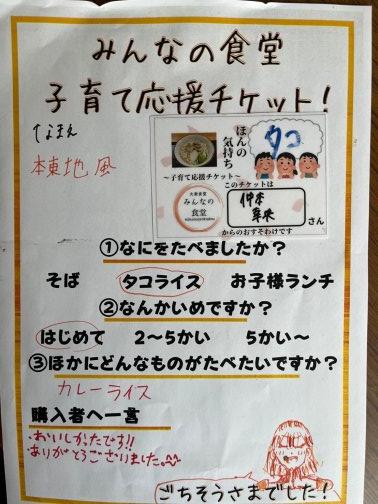 みんなの食堂
子育て応援チケット!
なまえ
本東地 風
ほんの気持ち
タコ
〜子育て応援チケット〜
このチケットは
みんなの
食堂
さん
からのおすそわけです
①なにをたべましたか?
そば タコライス お子様ランチ
②なんかいめですか?
はじめて 2〜5かい 5かい〜
③ほかにどんなものがたべたいですか?
カレーライス
購入者へ一言
おいしかたです!!
ありがとうございました。
ごちそうさまでした!